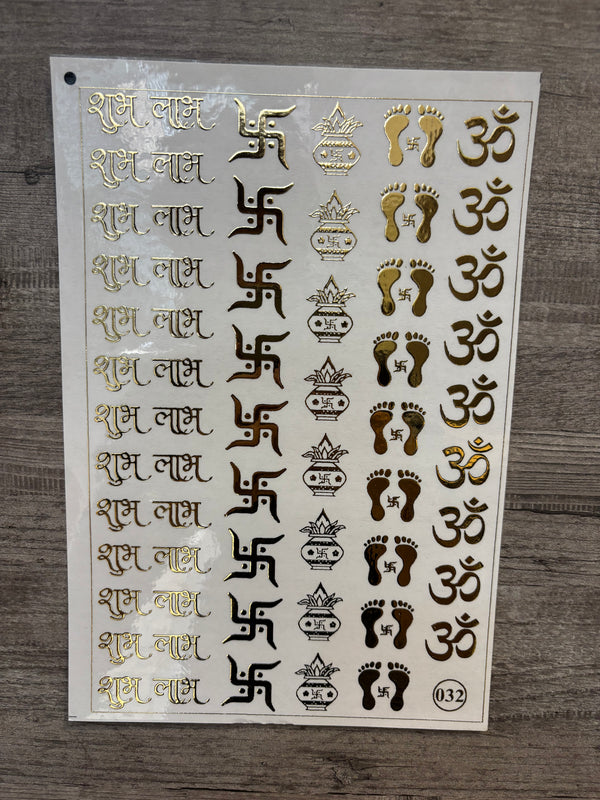 शुभ लाभ
शुभ लाभ
शुभ लाभ
शुभ लाभ
शुभ लाभ
शुभ लाभ
शुभ लाभ
शुभ लाभ
शुभ लाभ
शुभ लाभ
शुभ लाभ
शुभ लाभ
शुभ लाभ
ॐ
ॐ
ॐ
ॐ
ॐ
ॐ
ॐ
ॐ
ॐ
032